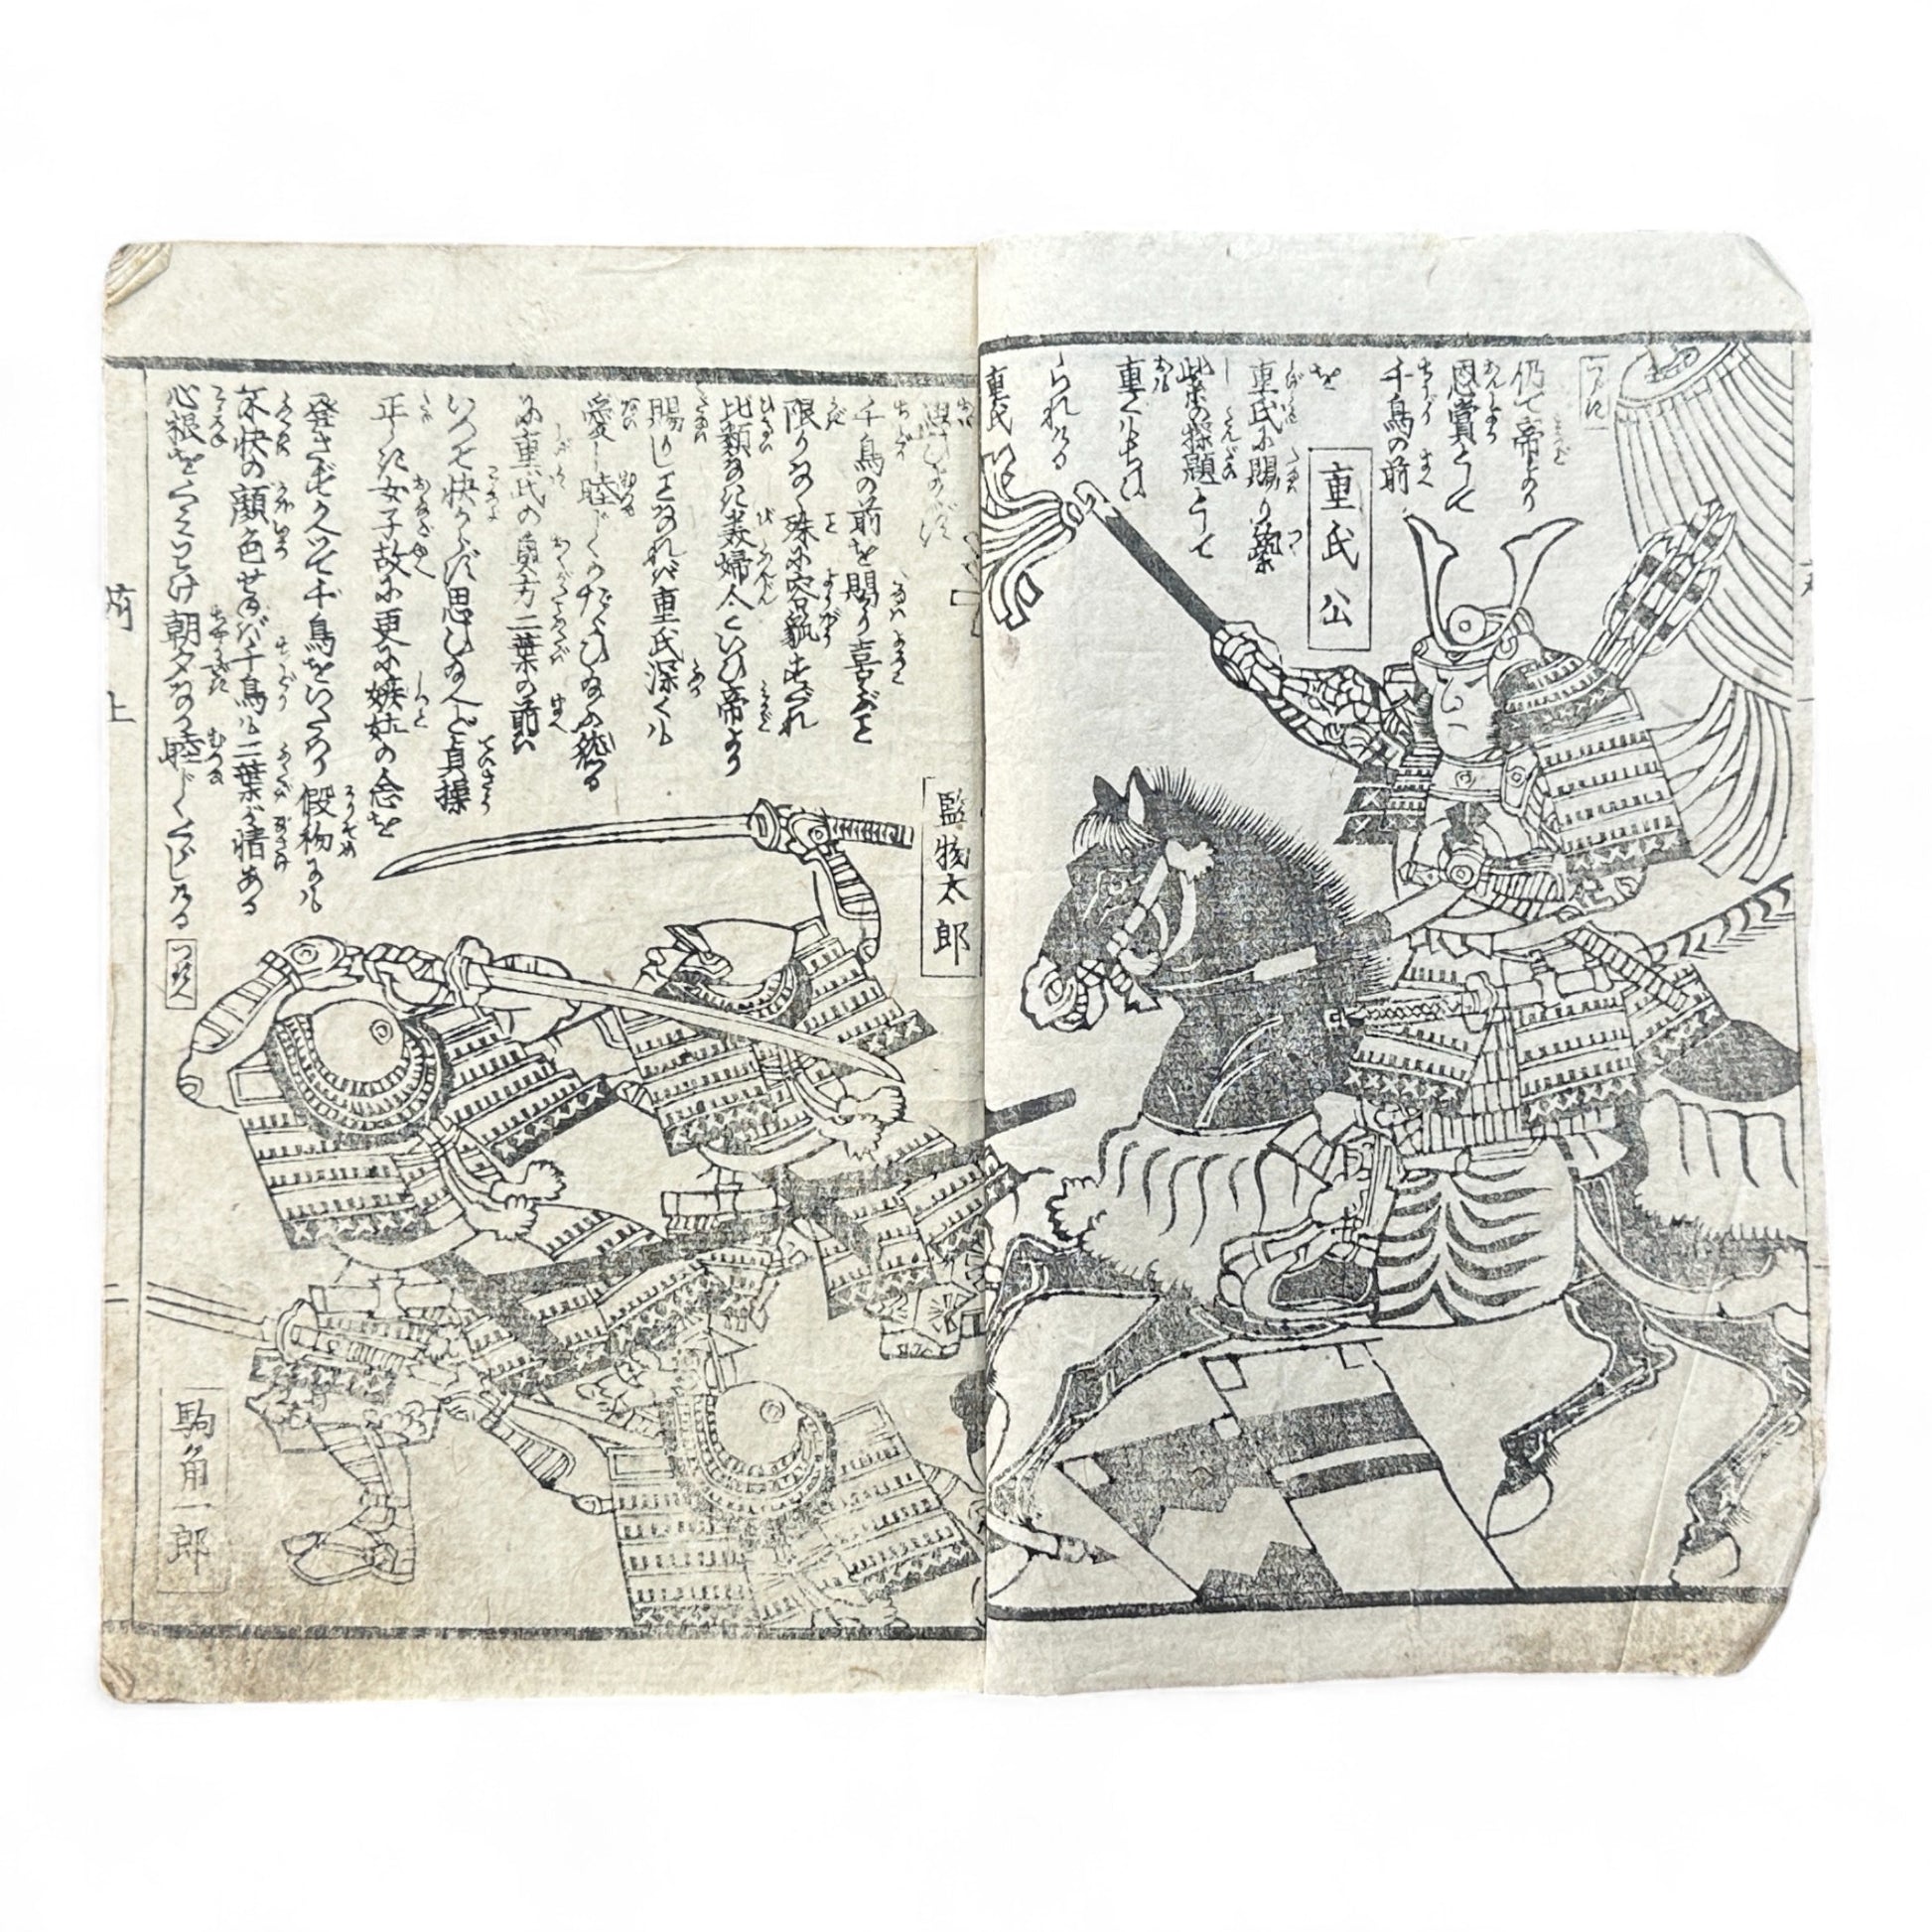 つゞき
仍て帝より
恩賞として
千鳥の前
を
重氏に賜り築
紫の探題として
重く用ひ
られける
重氏
重氏公
思ひきや
千鳥の前を賜り喜ぶこと
限りなく殊に容貌すぐれ
比類なき美婦人といひ帝より
賜りしことなれば重氏深くも
愛し睦じくかたらひ給ふ然る
に重氏の奥方二葉の前は
いつそ快からず思ひ給へど貞操
正しき女子故に更に嫉妬の念を
発さず却つて千鳥をいたわり假初にも
不快の顔色せねば千鳥も二葉が情ある
心根をくみわけ朝夕なか睦じくくらしける
つぎへ
監物太郎
駒角一郎
前
上
二